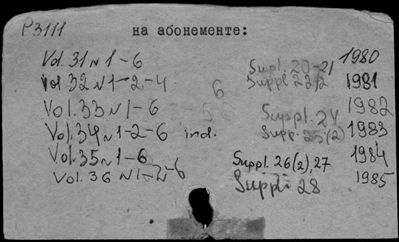 P3111 на абонементе:
Vol. 31 N 1-6 Supl. 20-21 1980
Vol 32 N 1-2-4 6 Suppl 22/2 1981
Vol. 33 N 1-6 Suppl. 24 1982
Vol. 34 N 1-2-6 ind. Supp. 25(2) 1983
Vol. 35 N 1-6 Suppl. 26(2), 27 1984
Vol. 36 N 1-2-6 Suppl. 28 1985